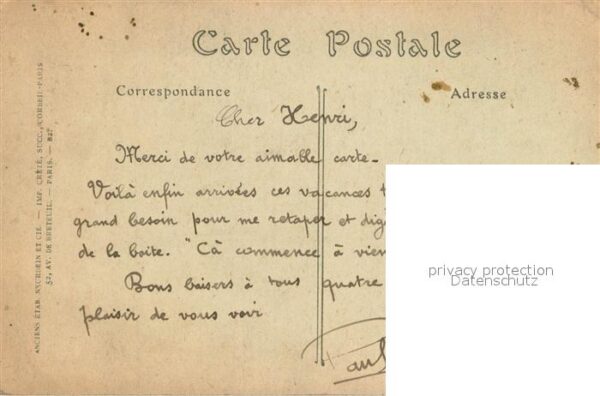 Carte Postale
Correspondance
Adresse
Cher Henri,
Merci de votre aimable carte-
Voilà enfin arrivées ces vacances
grand besoin pour me retaper et dig
de la boite. "Cà commence à vien
Bons baisers à tous quatre
plaisir de vous voir
Paul
privacy protection
Datenschutz
ANCIENS ÉTAB. NEURDEIN ET CIE. — IMP. CRÉTÉ, SUCC., CORBEIL-PARIS
52, AV. DE BRETEUIL. — PARIS. — 827